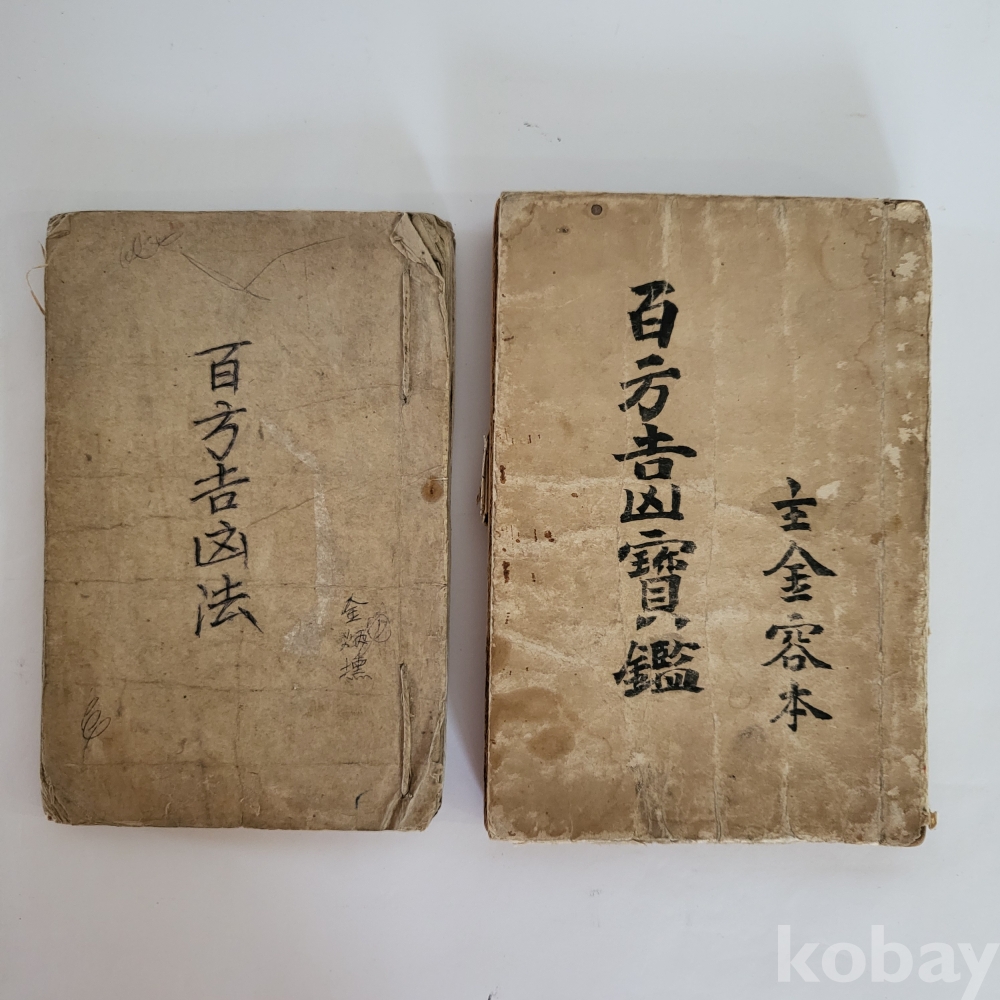 百方吉凶法
金炳壎
百方吉凶寶鑑
主金容本
kobay